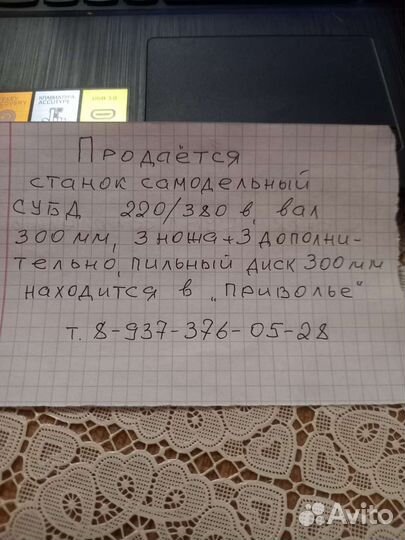 КЛАВИАТУРА
ACCUTYPE
Продаётся
станок самодельный
СУБД 220/380 в, вал
300 мм, 3 ножа+3 дополни-
тельно, пильный диск 300мм
находится в "Приволье"
т. 8-937-376-05-28
Avito